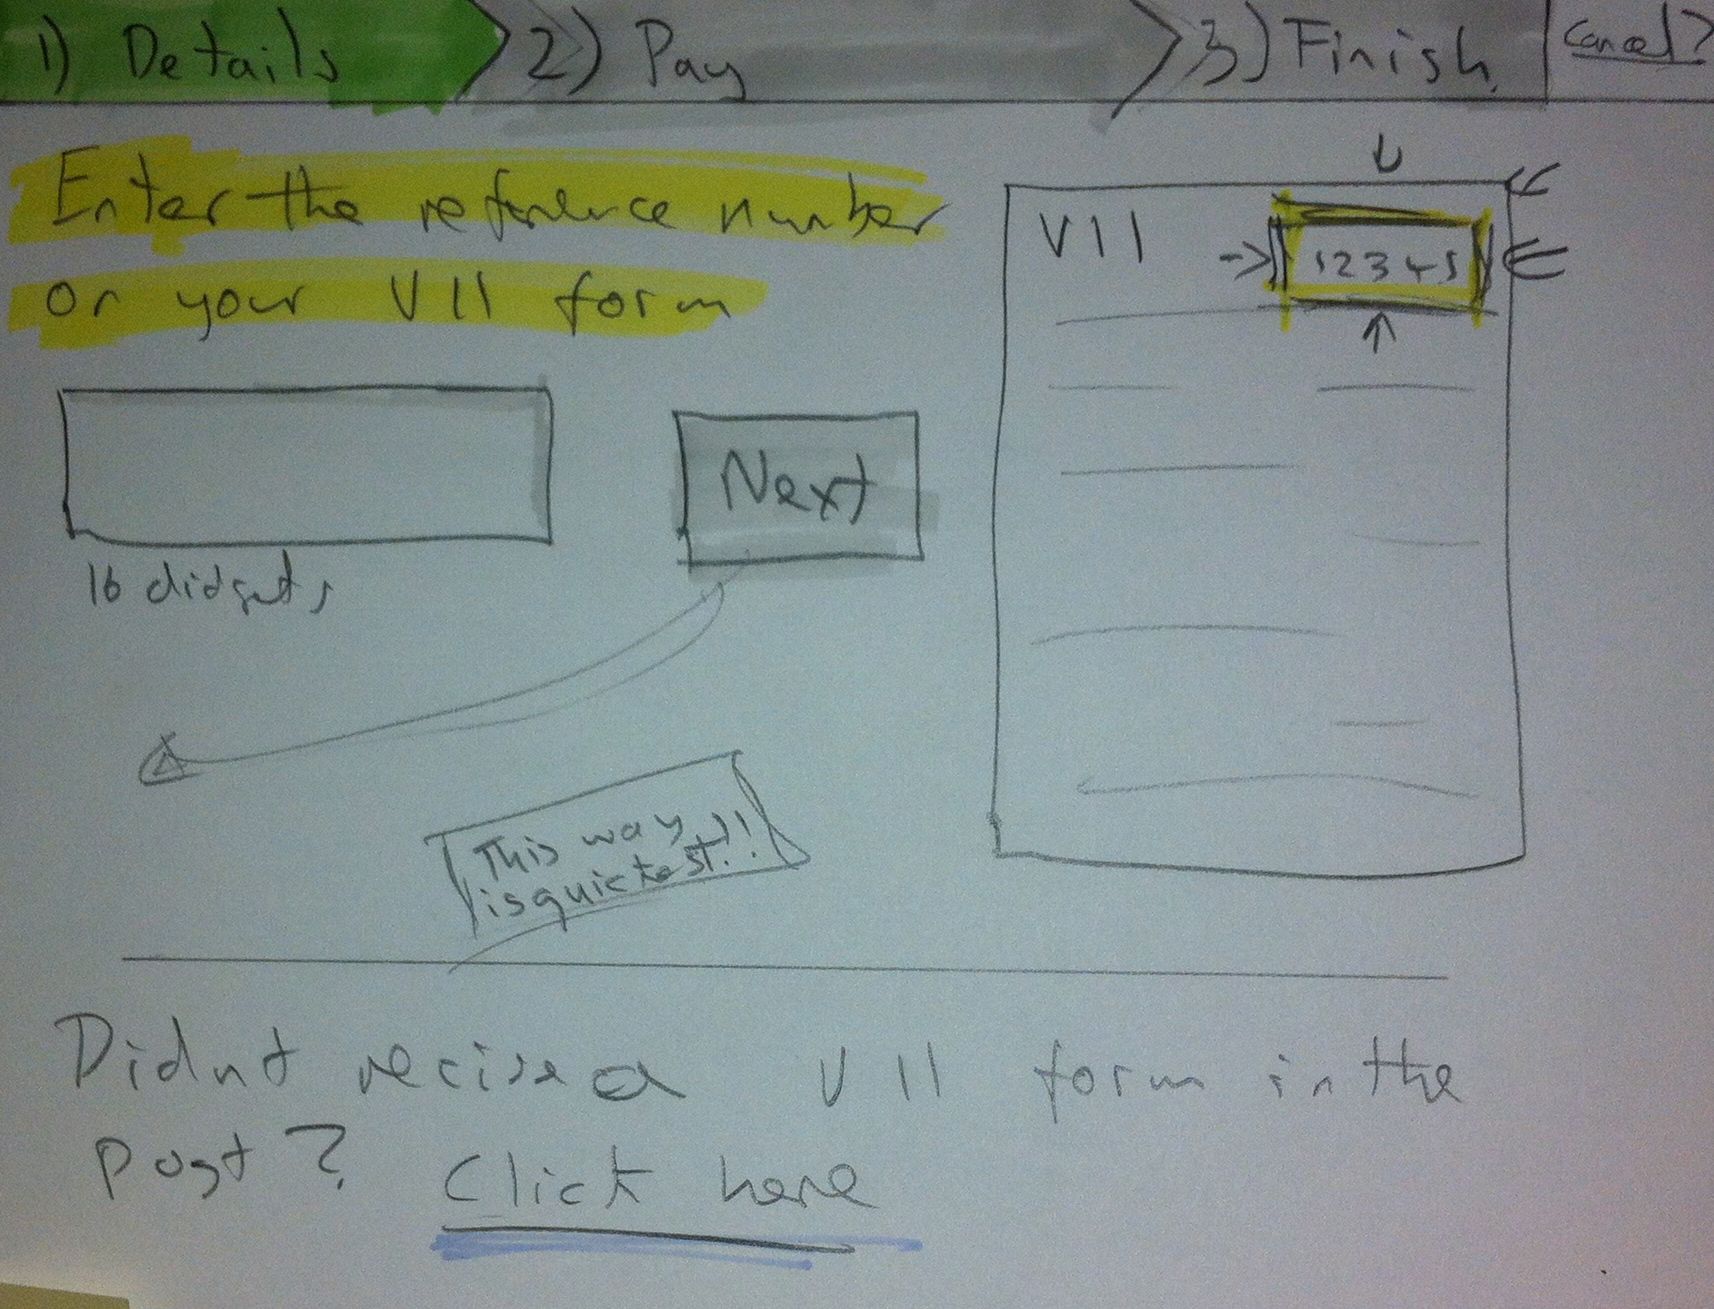 1) Details 2) Pay 3) Finish Cancel?
Enter the reference number
on your V11 form
V11 12345
Next
16 didgets
This way
is quickest!!
Didnt recive a V11 form in the
post? Click here